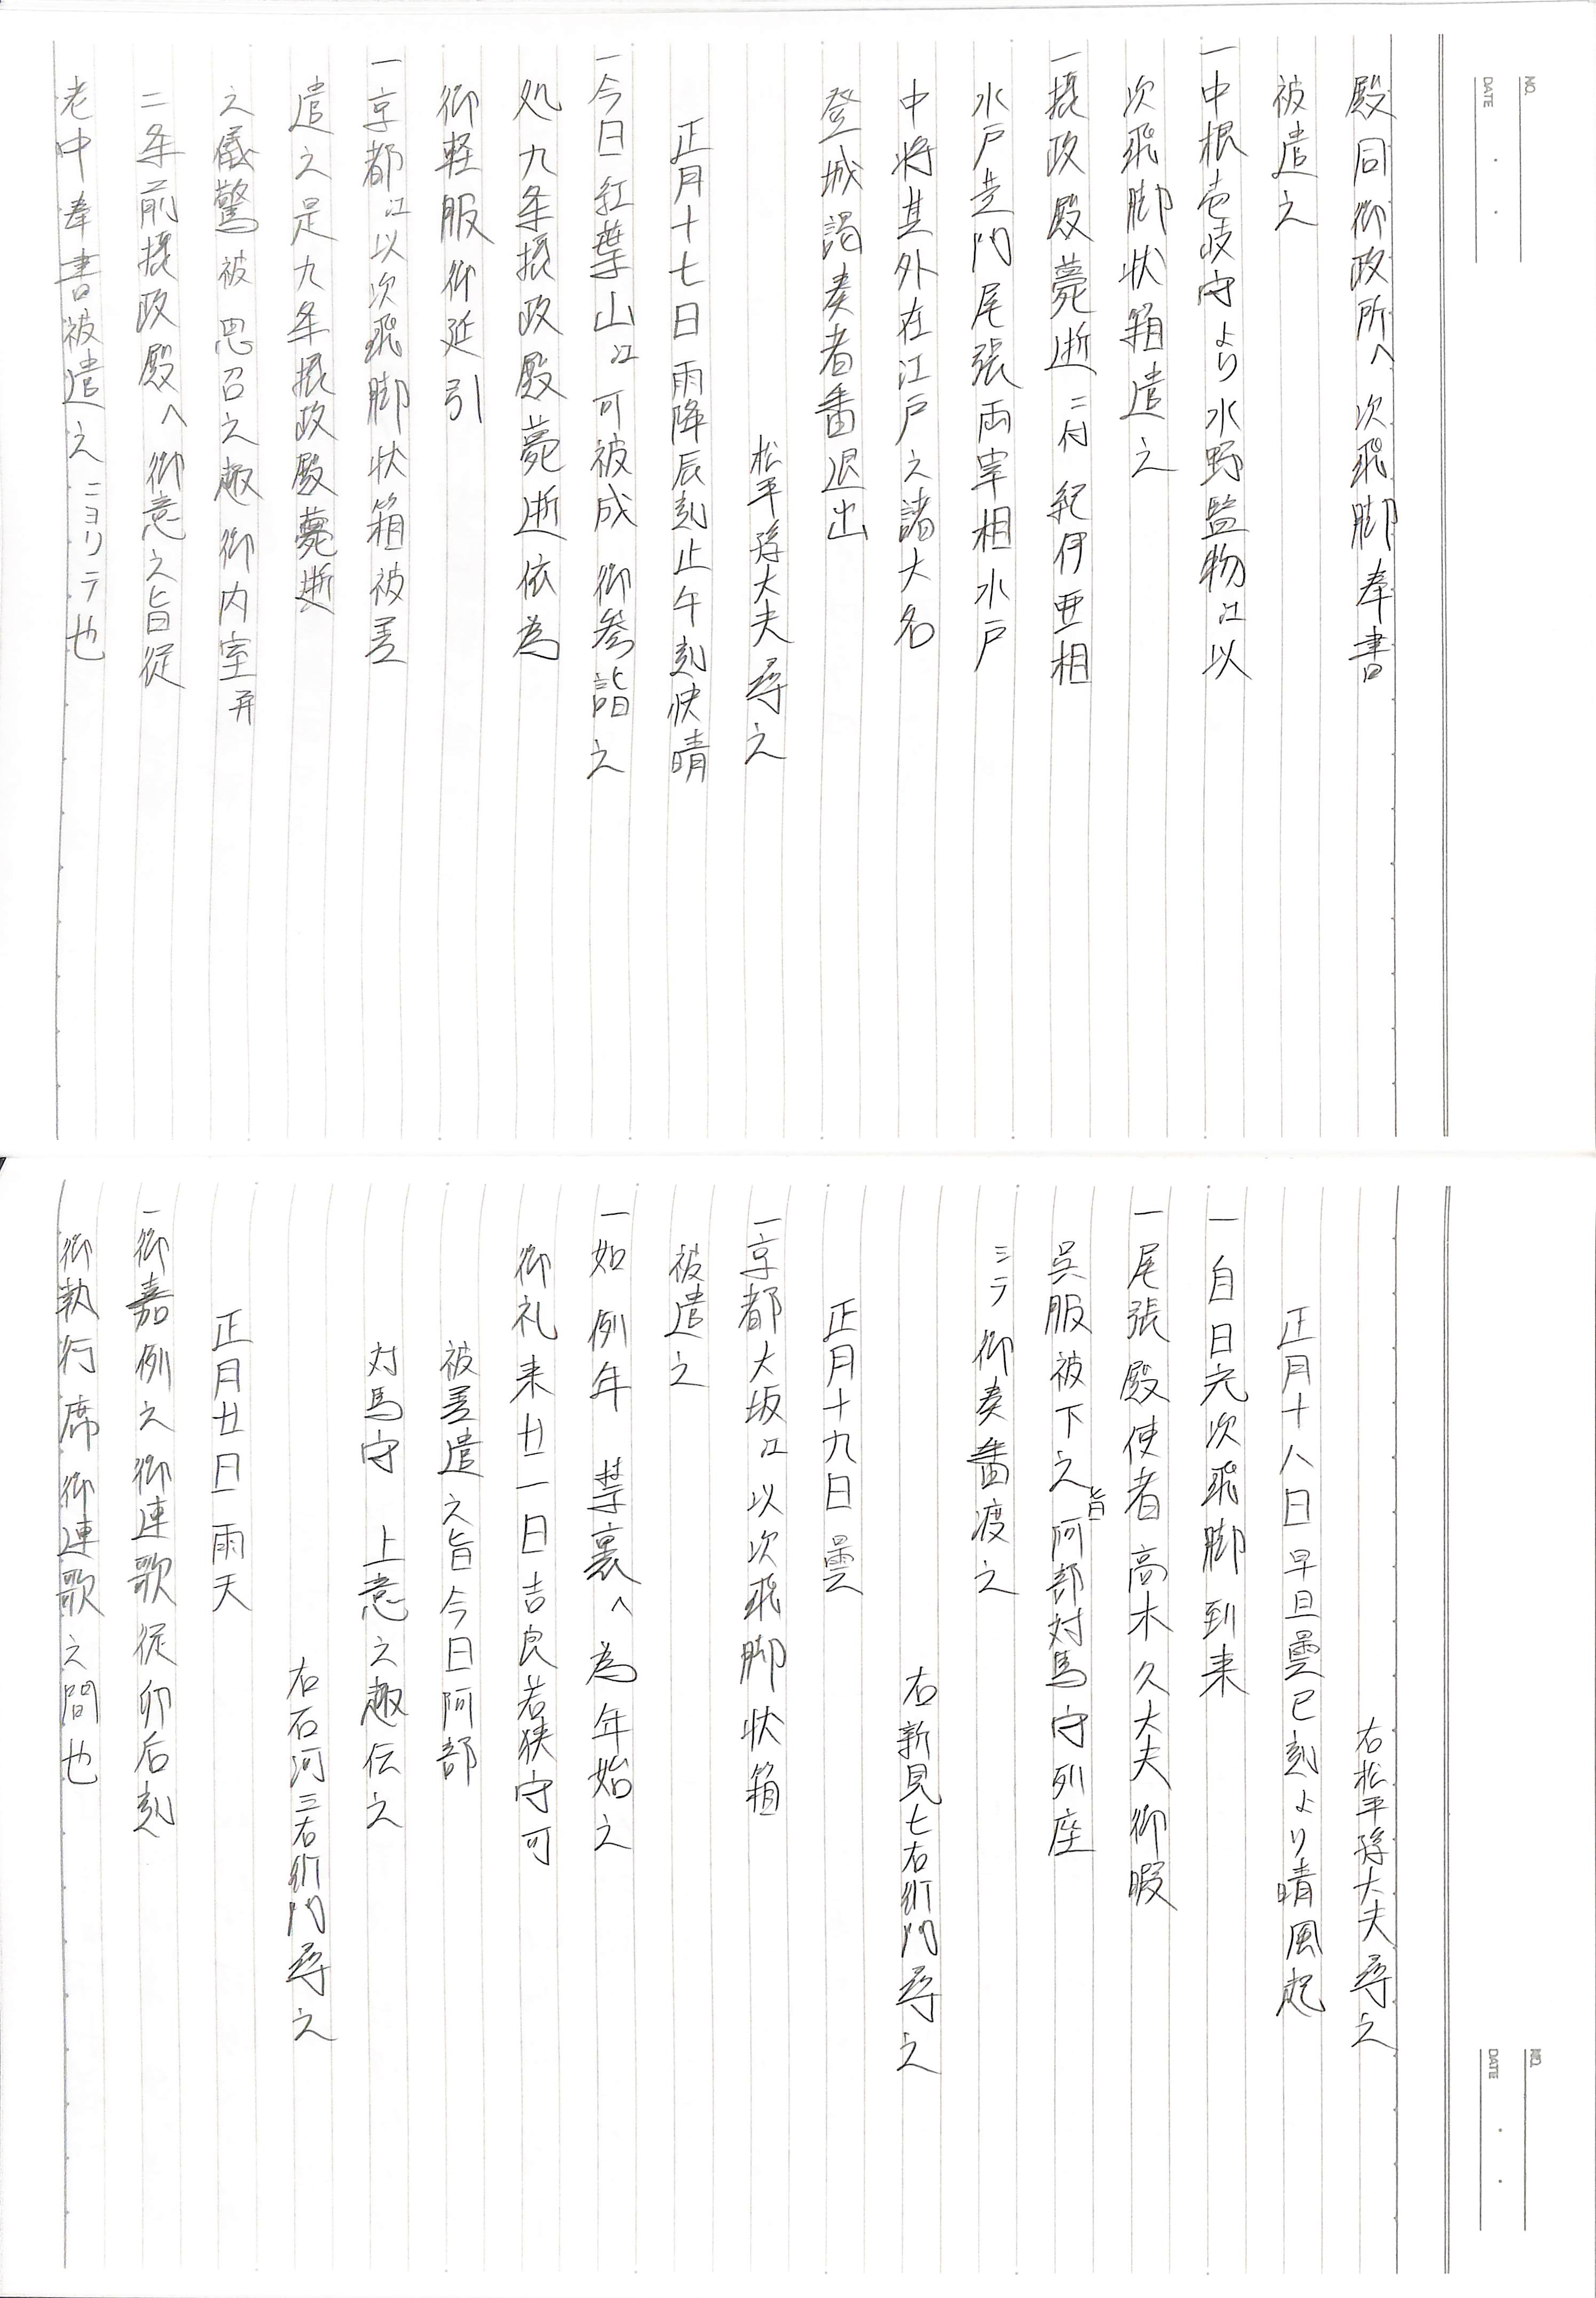 NO.
DATE
殿同御政所へ 次飛脚 奉書
被遣之
一中根壱岐守より水野監物江以
次飛脚状箱遣之
一摂政殿薨逝ニ付 紀伊亜相
水戸黄門尾張両宰相水戸
中将其外在江戸之諸大名
登城謁奏者番退出
松平孫大夫尋之
正月十七日 雨降辰刻止午刻快晴
一今日紅葉山江 可被成 御参詣之
処九条摂政殿薨逝依為
御軽服御延引
一京都江以次飛脚状箱被差
遣之是九条摂政殿薨逝
之儀驚被 思召之趣御内室并
二条前摂政殿へ 御意之旨従
老中奉書被遣之ニヨリテ也
NO.
DATE
右松平孫大夫尋之
正月十八日 早旦曇巳刻より晴風起
一自日光次飛脚到来
一尾張殿使者高木久大夫御暇
呉服被下之旨阿部対馬守列座
ニテ御奏番渡之
右新見七右衛門尋之
正月十九日 曇
一京都大坂江以次飛脚状箱
被遣之
一如例年 禁裏へ為年始之
御礼来廿一日吉良若狭守可
被差遣之旨今日阿部
対馬守 上意之趣伝之
右石河三右衛門尋之
正月廿日 雨天
一御嘉例之御連歌従卯后刻
御執行席御連歌之間也